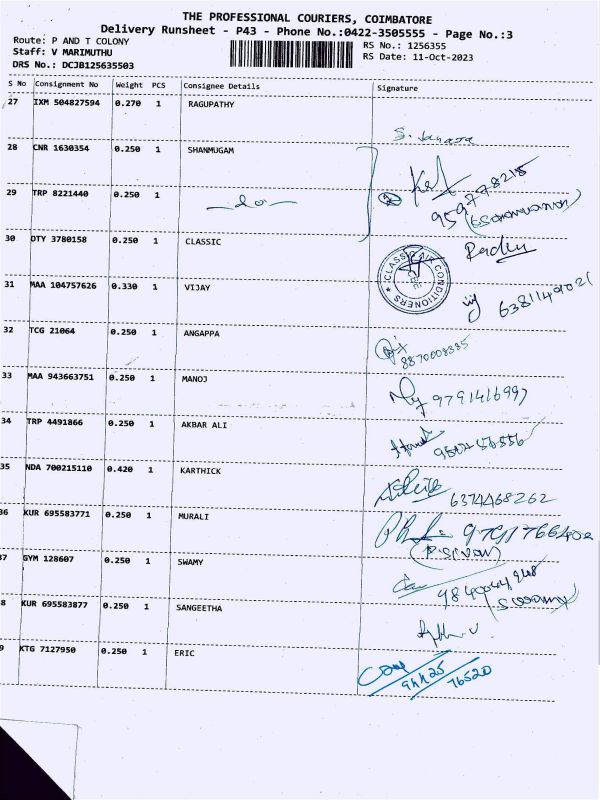 THE PROFESSIONAL COURIERS, COIMBATORE
Delivery Runsheet - P43 - Phone No.:0422-3505555 - Page No.:3
Route: P AND T COLONY
RS No.: 1256355
Staff: V MARIMUTHU
RS Date: 11-Oct-2023
DRS No.: DCJB125635503
S No Consignment No Weight PCS Consignee Details Signature
27 IXM 504827594 0.270 1 RAGUPATHY
28 CNR 1630354 0.250 1 SHANMUGAM
29 TRP 8221440 0.250 1 -do-
9597778215
30 DTY 3780158 0.250 1 CLASSIC
CLASSIC AIR CONDITIONERS
31 MAA 104757626 0.330 1 VIJAY
32 TCG 21064 0.250 1 ANGAPPA
8870008335
33 MAA 943663751 0.250 1 MANOJ 9791416997
34 TRP 4491866 0.250 1 AKBAR ALI
35 NDA 700215110 0.420 1 KARTHICK 6374468262
36 KUR 695583771 0.250 1 MURALI 9791766402
(P. SIVAN)
37 GYM 128607 0.250 1 SWAMY
38 KUR 695583877 0.250 1 SANGEETHA
39 KTG 7127950 0.250 1 ERIC
76520